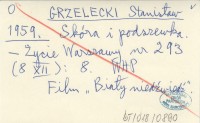 O GRZELECKI Stanisław
1959. Skóra i podszewka.
– Życie Warszawy nr 293
(8 XII): 8. WHP
Film „Biały niedźwiedź"